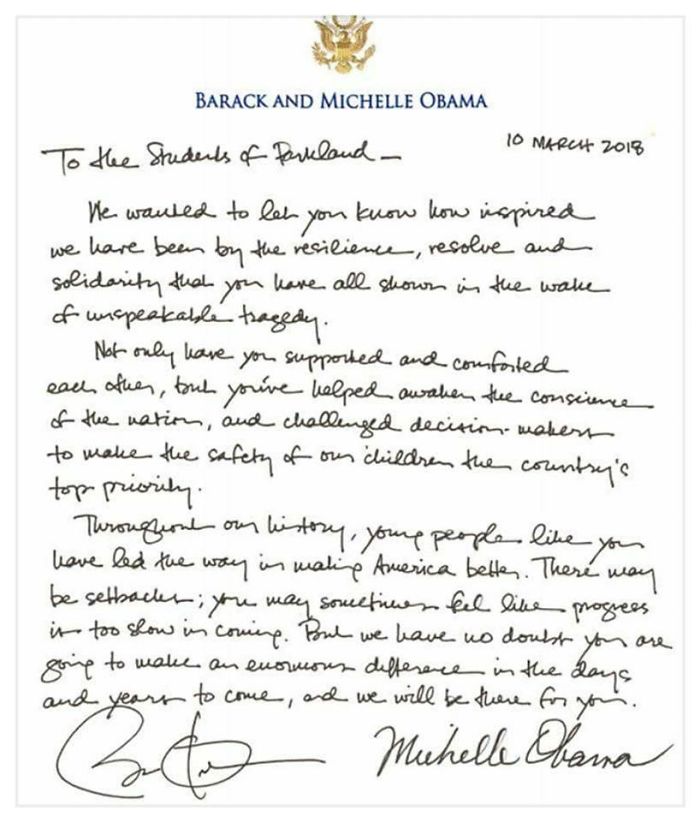 BARACK AND MICHELLE OBAMA
10 MARCH 2018
To the Students of Parkland —
We wanted to let you know how inspired
we have been by the resilience, resolve and
solidarity that you have all shown in the wake
of unspeakable tragedy.
Not only have you supported and comforted
each other, but you've helped awaken the conscience
of the nation, and challenged decision-makers
to make the safety of our children the country's
top priority.
Throughout our history, young people like you
have led the way in making America better. There may
be setbacks; you may sometimes feel like progress
is too slow in coming. But we have no doubt you are
going to make an enormous difference in the days
and years to come, and we will be there for you.
Michelle Obama